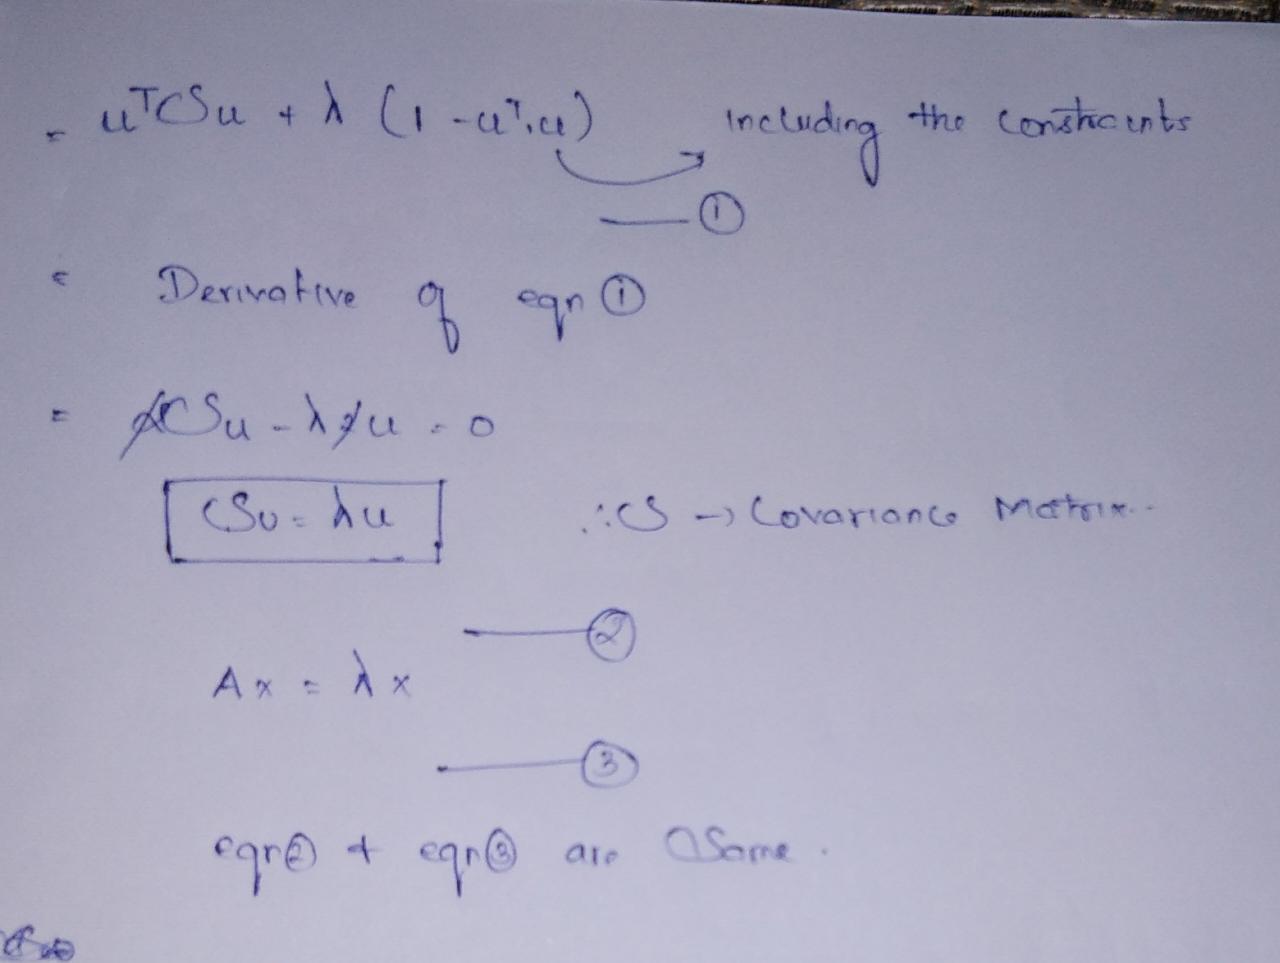 = uᵀCSu + λ (1 - uᵀ.u) including the constraints
— ①
= Derivative of eqn ①
= 2CSu - λ2u = 0
CSu = λu ∴ CS → Covariance Matrix..
— ②
Ax = λx
— ③
eqn② + eqn③ are Same.